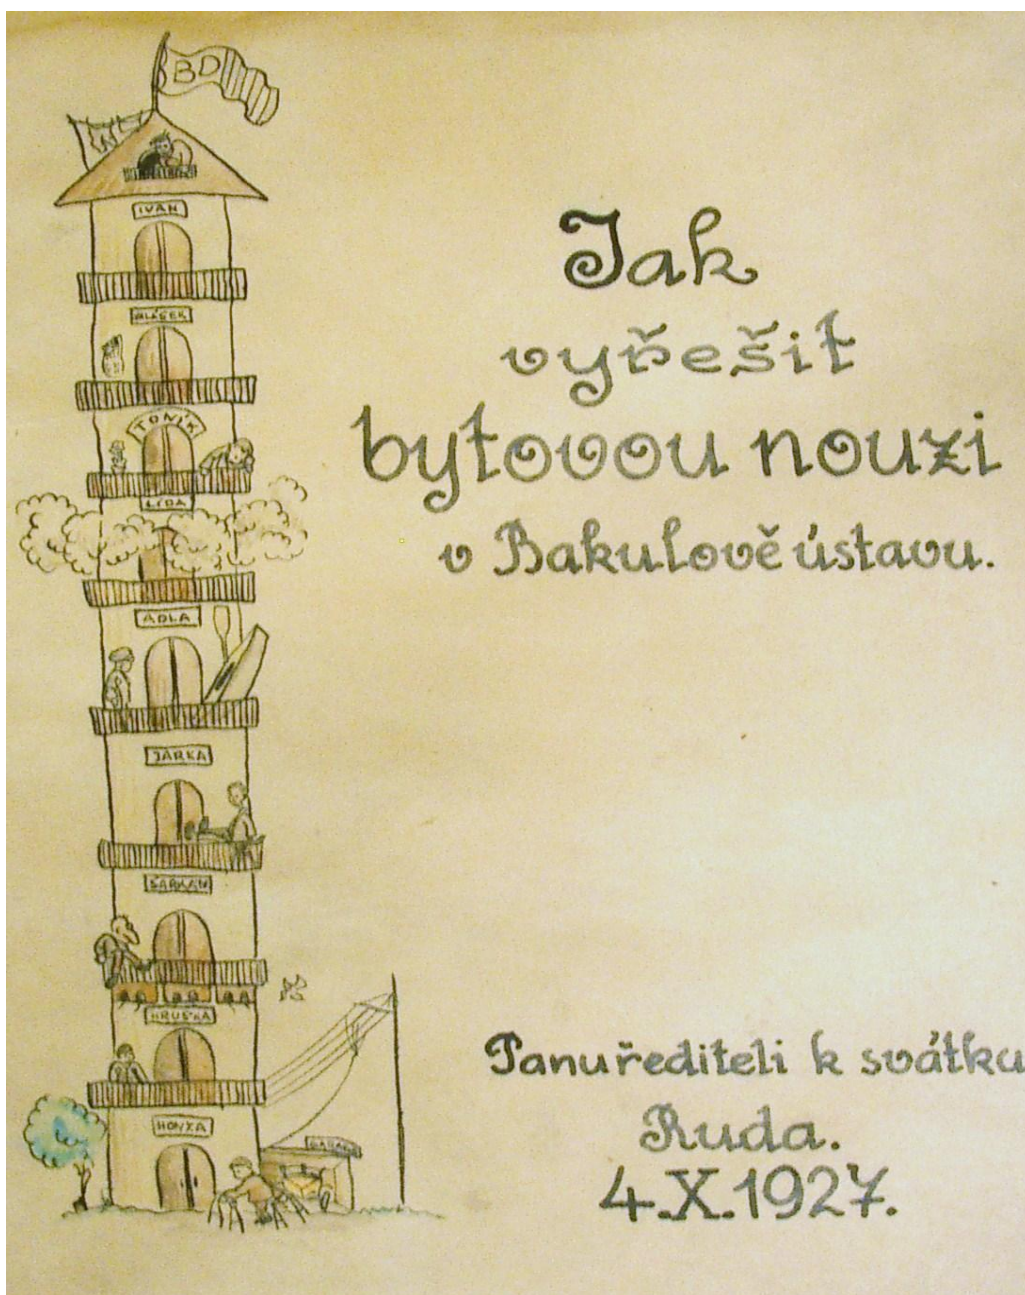 BD
IVAN
TONÍK
LÍDA
ADLA
JARKA
ŠARKAN
HRUŠKA
HONZA
Jak
vyřešit
bytovou nouzi
v Bakulově ústavu.
Panu řediteli k svátku
Ruda.
4.X.1927.